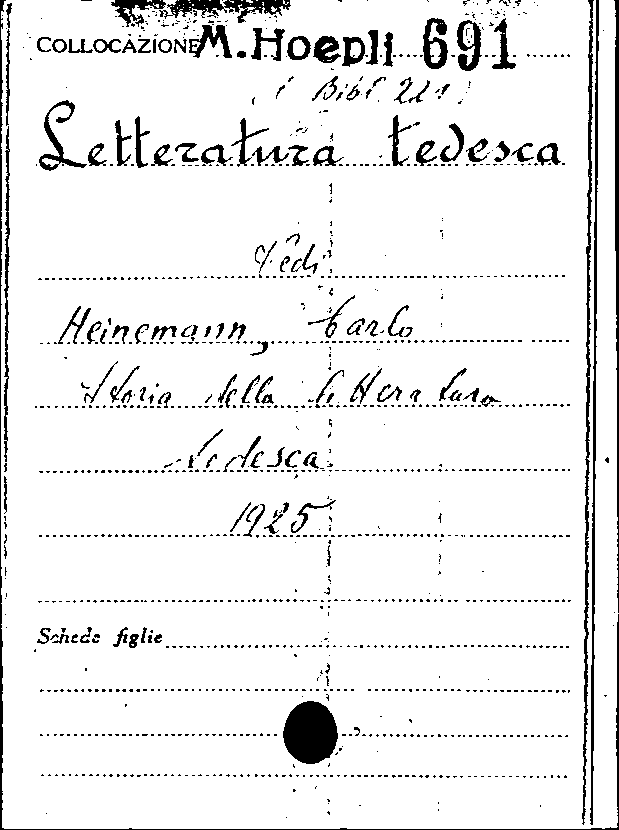 COLLOCAZIONE M. Hoepli 691
(Bibl. 221)
Letteratura tedesca
Vedi
Heinemann, Carlo
Storia della letteratura
tedesca
1925
Schede figlie